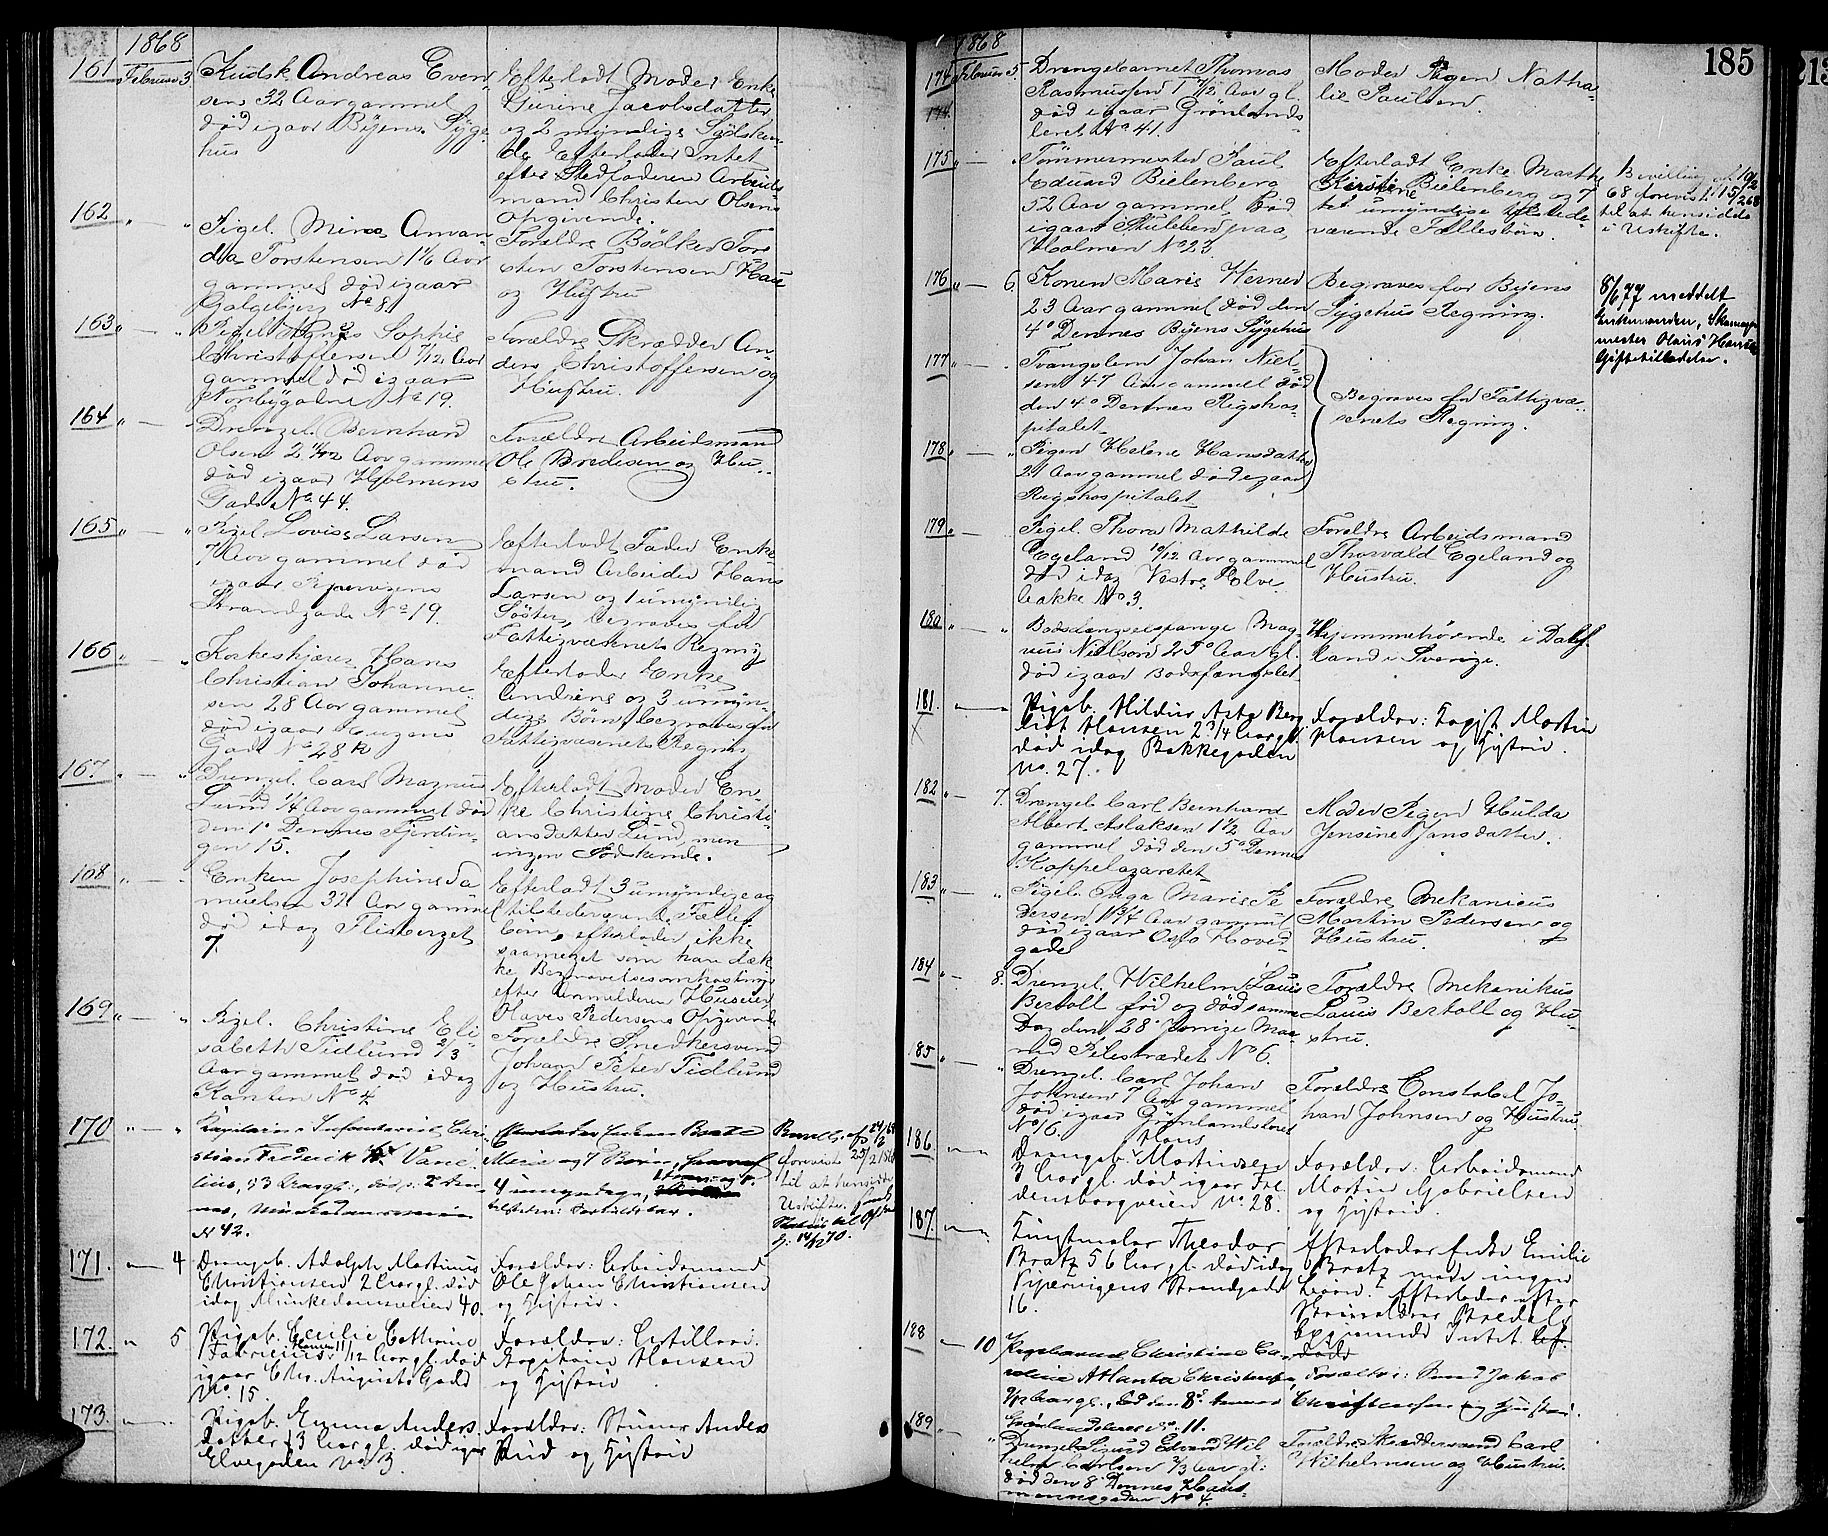 1868
161 Februar 3 Kudsk Andreas Even-
sen 32 Aar gammel
død igaar Byens Syge-
hus
Efterladt Moder Enke
Gurine Jacobsdatter
og 2 myndige Sødsken-
de Efterlader Intet
efter Stedfaderen Arbeids-
mand Christen Olsens
Opgivende.
162 " — " Pigeb. Mina Aman-
da Torstensen 1 1/6 Aar
gammel død igaar
Galgebjerg No 81
Forældre Bødker Tor-
sten Torstensen Haue
og Hustru
163 " — " Pigeb. Agnes Sophie
Christoffersen 7/12 Aar
gammel død igaar
Norbygaden No 19.
Forældre Skrædder An-
ders Christoffersen og
Hustru.
164 " — Drengeb. Bernhard
Olsen 2 11/12 Aar gammel
død igaar Holmens
Gade No 44.
Forældre Arbeidsmand
Ole Bredesen og Hu-
stru.
165 " — " Pigeb. Lovise Larsen
7 Aar gammel død
igaar Pipervigens
Strandgade No 19.
Efterladt Fader Enke-
mand Arbeider Hans
Larsen og 1 umyndig
Søster, begraves for
Fattigvæsnets Regning
166 " — " Korkeskjærer Hans
Christian Johanne-
sen 28 Aar gammel
død igaar Enzens
Gade No 28 k
Efterlader Enke
Andrine og 3 umyn-
dige Børn, begraves for
Fattigvæsenets Regning
167 " — " Drengeb. Carl Magnus
Lund 1/4 Aar gammel død
den 1o Dennes Fjerdin-
gen 15.
Efterladt Moder En-
ke Christine Christi-
ansdatter Lund, men
ingen Sødskende.
168 " — Enken Josephine Sa-
muelsen 32 Aar gammel
død idag Flisberget
7.
Efterladt 3 umyndige og
tilstedeværende Fælles
børn, efterlader ikke
saameget som kan dæk-
ke Begravelsesomkostning
efter Anmelderen Huseier
Olaves Pedersens Opgivende
169 " — " Pigeb. Christine Eli-
sabeth Tidlund 2/3
Aar gammel død idag
Kanten No 4
Forældre Snedkersvend
Johan Peter Tidlund
og Hustru.
170 " — " Kapitain i Infanteriet Chri-
stian Frederik Vane-
lius, 53 Aar gl., død
Munkedamsveien
N 42.
Marie og 7 Børn,
4 umyndige,
Bevilg. af 24/2 68
forevist 25/2 1868
til at hensidde
Uskiftet
171. — 4 Drengeb. Adolph Martinus
Christiansen 2 Aar gl. død
idag Munkedamsveien 40.
Forældre: Arbeidsmand
Ole Johan Christiansen
og Hustru.
172. " 5 Pigeb. Cecilie Cathrine
Fabricius Hansen 11/12 Aar gl. død
igaar Chr. Augusts Gade
No. 15.
Forældre: Artilleri-
Kapitain Hansen
og Hustru
173. — Pigeb. Emma Anders-
datter 13 Aar gl. død igaar
Elvegaden No 3
Forældre: Stuer Anders
Ruud og Hustru
1868
185
213
174 Februar 5. Drengebarnet Thomas
174. Rasmussen 1 7/12 Aar gl.
død igaar Grønlands-
leret No 41.
Moder Pigen Natha-
lie Paulsen.
175 " — . Tømmermester Paul
Eduard Bielenberg
52 Aar gammel, død
igaar Skuleberg paa
Holmen No 23
Efterladt Enke Marthe
Kirstine Bielenberg og 7
umyndige tilstede-
værende Fællesbørn.
Bevilling af 10/2
68 forevist 15/2 68
til at hensidde
i Uskifte.
176 " — 6. Konen Marie Werner
23 Aar gammel død den
4o Dennes Byens Sygehus
Begraves for Byens
Sygehus Regning.
8/6 77 meddelt
Enkemanden, Skomager-
mester Olaus Hansen
Giftetilladelse.
177 " — . Tvangslem Johan Niel-
sen 47 Aar gammel død
den 4o Dennes Rigshos-
pitalet
Begraves for Fattigvæ-
senets Regning.
178 " — " Pigen Helene Hansdatter
21 Aar gammel død igaar
Rigshospitalet
179 " — Pigeb. Thora Mathilde
Egeland 10/12 Aar gammel
død idag Vestre Elve-
bakke No 3.
Forældre Arbeidsmand
Thorvald Egeland og
Hustru.
180 " — " Bodsfængselsfange Mag-
nus Nielson 25 Aar gl.
død igaar Bodsfængslet
Hjemmehørende i Dals-
land i Sverige.
181. — Pigeb. Hildur Asta Berg-
liot Hansen 2 3/4 Aar gl.
død idag Bakkegaden
No. 27.
Forældre: Fagot Martin
Hansen og Hustru.
182 " — 7. Drengeb. Carl Bernhard
Albert Aslaksen 1 1/2 Aar
gammel død den 5o Dennes
Koppelazarettet
Moder Pigen Hulda
Jensine Jansdatter.
183 " — " Pigeb. Inga Marie Pe-
dersen 1 3/4 Aar gammel
død igaar Oslo Hoved-
gade
Forældre Mekanicus
Martin Pedersen og
Hustru.
184 " — 8. Drengeb. Wilhelm Lauis
Bertoll fød og død samme
Dag den 28o forrige Maa-
ned Pilestrædet No 6.
Forældre Mekanikus
Lauis Bertoll og Hu-
stru.
185 " — " Drengeb. Carl Johan
Johnsen 7 Aar gammel
død igaar Grønlandsleret
No 16.
Forældre Constabel Jo-
han Johnsen og Hustru.
186 — Drengeb. Hans Martinsen
3 Aar gl. død igaar Fre-
densborgveien No. 28.
Forældre: Arbeidsmand
Martin Gabrielsen
og Hustru.
187. — Kunstmaler Theodor
Bratz 56 Aar gl. død idag
Pipervigens Strandgade
16.
Efterlader Enke Emilie
Bratz men ingen
Børn. Efterlader efter
Bredals
Opgivende Intet.
188 — 10 Pigebarnet Christine Ca-
roline Atlanta Christensen
Aar gl., død den 8de
Grønlandsleret No 11.
Forældre: Jakob
Christensen og Hustru.
189 " — " Drengeb. Sigurd Edvard Wil-
helm Carlsen 2/3 Aar gl:
død den 8 Dennes Haus-
mannsgaden No 4.
Forældre Skræddersvend Carl
Wilhelmsen og Hustru.